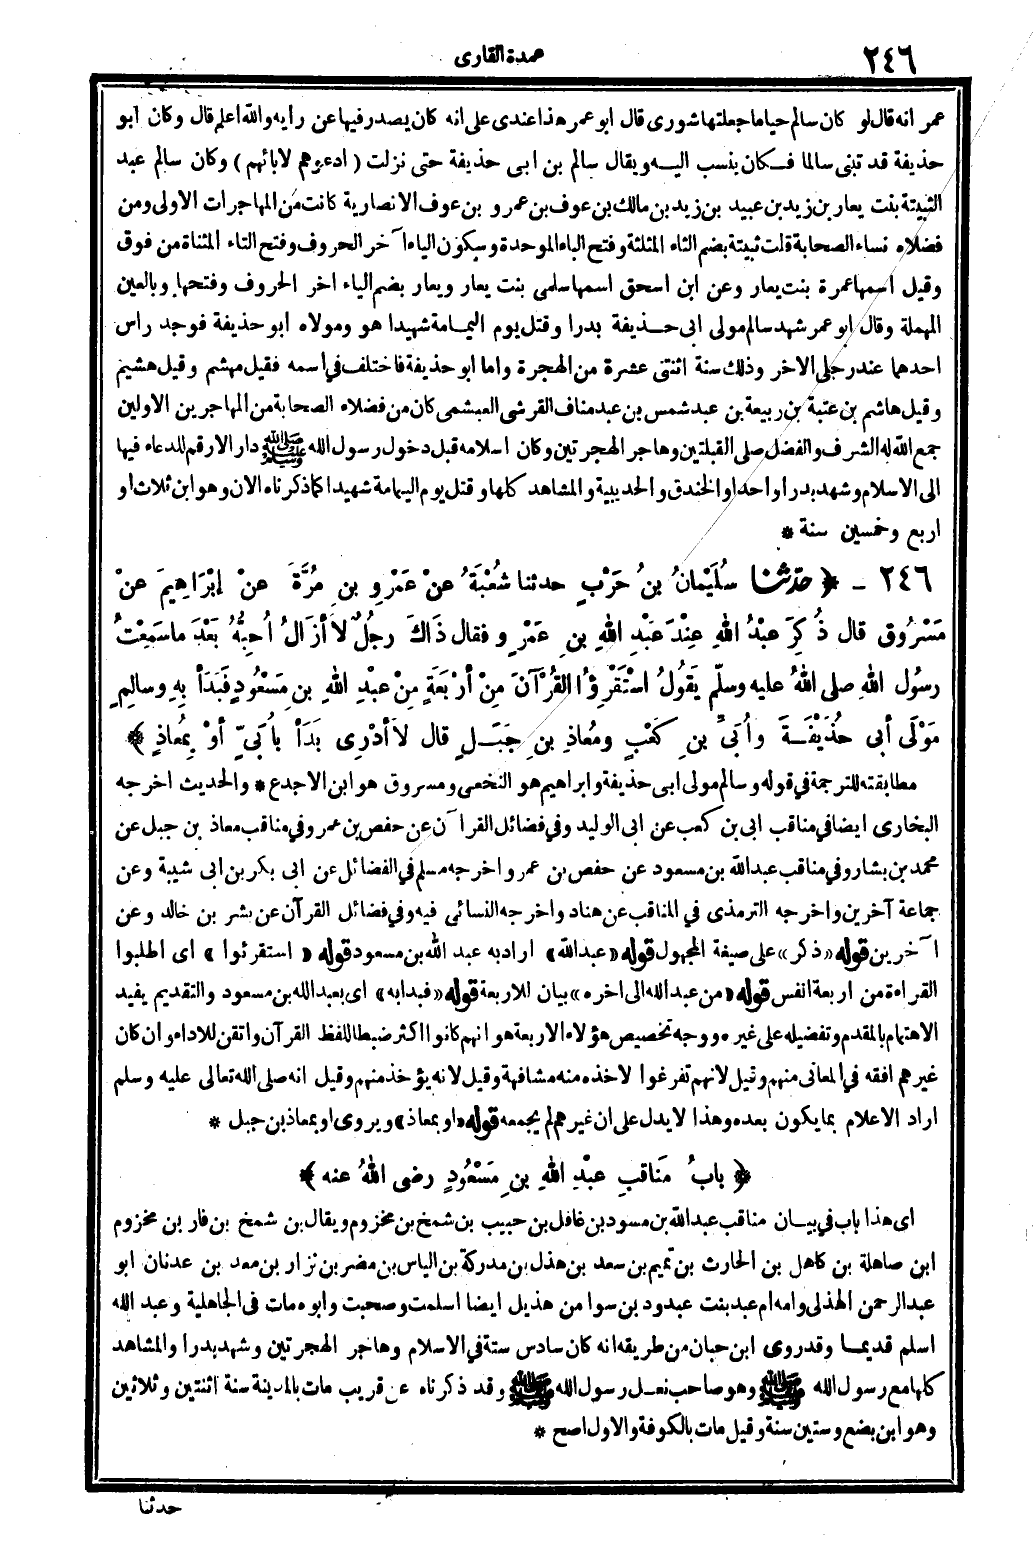 ٢٤٦
عمدة القارى
عمر انه قال لو كان سالم حيا ما جعلتها شورى قال ابو عمر هذا عندى على انه كان يصدر فيها عن رايه والله اعلم قال وكان ابو
حذيفة قد تبنى سالما فكان ينسب اليه ويقال سالم بن ابى حذيفة حتى نزلت ( ادعوهم لابائهم ) وكان سالم عبد
الثبيتة بنت يعار بن زيد بن عبيد بن زيد بن مالك بن عوف بن عمرو بن عوف الانصارية كانت من المهاجرات الاولى ومن
فضلاء نساء الصحابة قلت ثبيتة بضم الثاء المثلثة وفتح الباء الموحدة وسكون الياء آخر الحروف وفتح التاء المثناة من فوق
وقيل اسمها عمرة بنت يعار وعن ابن اسحق اسمها سلمى بنت يعار ويعار بضم الياء اخر الحروف وفتحها وبالعين
المهملة وقال ابو عمر شهد سالم مولى ابى حذيفة بدرا وقتل يوم اليمامة شهيدا هو ومولاه ابو حذيفة فوجد راس
احدهما عند رجلى الاخر وذلك سنة اثنتى عشرة من الهجرة واما ابو حذيفة فاختلف فى اسمه فقيل مهشم وقيل هشيم
وقيل هاشم بن عتبة بن ربيعة بن عبد شمس بن عبد مناف القرشى العبشمى كان من فضلاء الصحابة من المهاجرين الاولين
جمع الله له الشرف والفضل صلى القبلتين وهاجر الهجرتين وكان اسلامه قبل دخول رسول الله ﷺ دار الارقم للدعاء فيها
الى الاسلام وشهد بدرا واحدا والخندق والحديبية والمشاهد كلها وقتل يوم اليمامة شهيدا كما ذكرناه الان وهو ابن ثلاث او
اربع وخمسين سنة *
٢٤٦ - ﴿ حدّثنا سُلَيْمانُ بنُ حَرْبٍ حدثنا شُعْبَةُ عنْ عَمْرِو بنِ مُرَّةَ عنْ إبْرَاهِيمَ عنْ
مَسْرُوق قال ذُكِرَ عبْدُ اللهِ عِنْدَ عَبْدِ اللهِ بنِ عَمْرٍو فقال ذَاكَ رجُلٌ لاَ أزَالُ أُحِبُّهُ بَعْدَ ما سَمِعْتُ
رسُول اللهِ صلى اللهُ عليه وسلّم يَقُولُ اسْتَقْرِؤُا القُرْآنَ مِنْ أرْبَعَةٍ مِنْ عبْدِ اللهِ بنِ مَسْعُودٍ فَبَدَأَ بِهِ وسالِمٍ
مَوْلَى أبى حُذَيْفَةَ وأُبَىِّ بنِ كَعْبٍ ومُعاذِ بنِ جَبَلٍ قال لاَ أدْرِى بَدَأَ بأُبَىٍّ أوْ بِمُعاذٍ ﴾
مطابقته للترجمة فى قوله وسالم مولى ابى حذيفة وابراهيم هو النخعى ومسروق هو ابن الاجدع * والحديث اخرجه
البخارى ايضا فى مناقب ابى بن كعب عن ابى الوليد وفى فضائل القرآن عن حفص بن عمرو فى مناقب معاذ بن جبل عن
محمد بن بشار وفى مناقب عبد الله بن مسعود عن حفص بن عمر واخرجه مسلم فى الفضائل عن ابى بكر بن ابى شيبة وعن
جماعة آخرين واخرجه الترمذى فى المناقب عن هناد واخرجه النسائى فيه وفى فضائل القرآن عن بشر بن خالد وعن
آخرين قوله «ذكر» على صيغة المجهول قوله «عبدالله» اراد به عبد الله بن مسعود قوله « استقرئوا » اى اطلبوا
القراءة من اربعة انفس قوله «من عبدالله الى اخره» بيان للاربعة قوله «فبدابه» اى بعبد الله بن مسعود والتقديم يفيد
الاهتمام بالمقدم وتفضيله على غيره ووجه تخصيص هؤلاء الاربعة هو انهم كانوا اكثر ضبطا للفظ القرآن واتقن للاداء وان كان
غيرهم افقه فى المعانى منهم وقيل لانهم تفرغوا لاخذه منه مشافهة وقيل لانه يؤخذ منهم وقيل انه صلى الله تعالى عليه وسلم
اراد الاعلام بما يكون بعده وهذا لا يدل على ان غيرهم لم يجمعه قوله «او بمعاذ» ويروى او بمعاذ بن جبل *
﴿ بابُ مَناقبِ عبْدِ اللهِ بنِ مَسْعُودٍ رضى اللهُ عنه ﴾
اى هذا باب فى بيان مناقب عبد الله بن مسود بن غافل بن حبيب بن شمخ بن مخزوم ويقال بن شمخ بن فار بن مخزوم
ابن صاهلة بن كاهل بن الحارث بن تميم بن سعد بن هذل بن مدركة بن الياس بن مضر بن نزار بن معد بن عدنان ابو
عبد الرحمن الهذلى وامه ام عبد بنت عبدود بن سوا من هذيل ايضا اسلمت وصحبت وابوه مات فى الجاهلية وعبد الله
اسلم قديما وقد روى ابن حبان من طريقه انه كان سادس ستة فى الاسلام وهاجر الهجرتين وشهد بدرا والمشاهد
كلها مع رسول الله ﷺ وهو صاحب نعل رسول الله ﷺ وقد ذكرناه عن قريب مات بالمدينة سنة اثنتين وثلاثين
وهو ابن بضع وستين سنة وقيل مات بالكوفة والاول اصح *
حدثنا